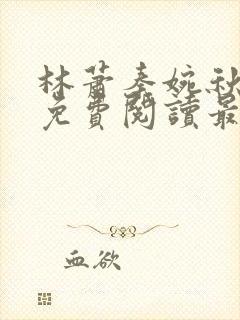 林萧秦婉秋
免費閱讀最
血欲